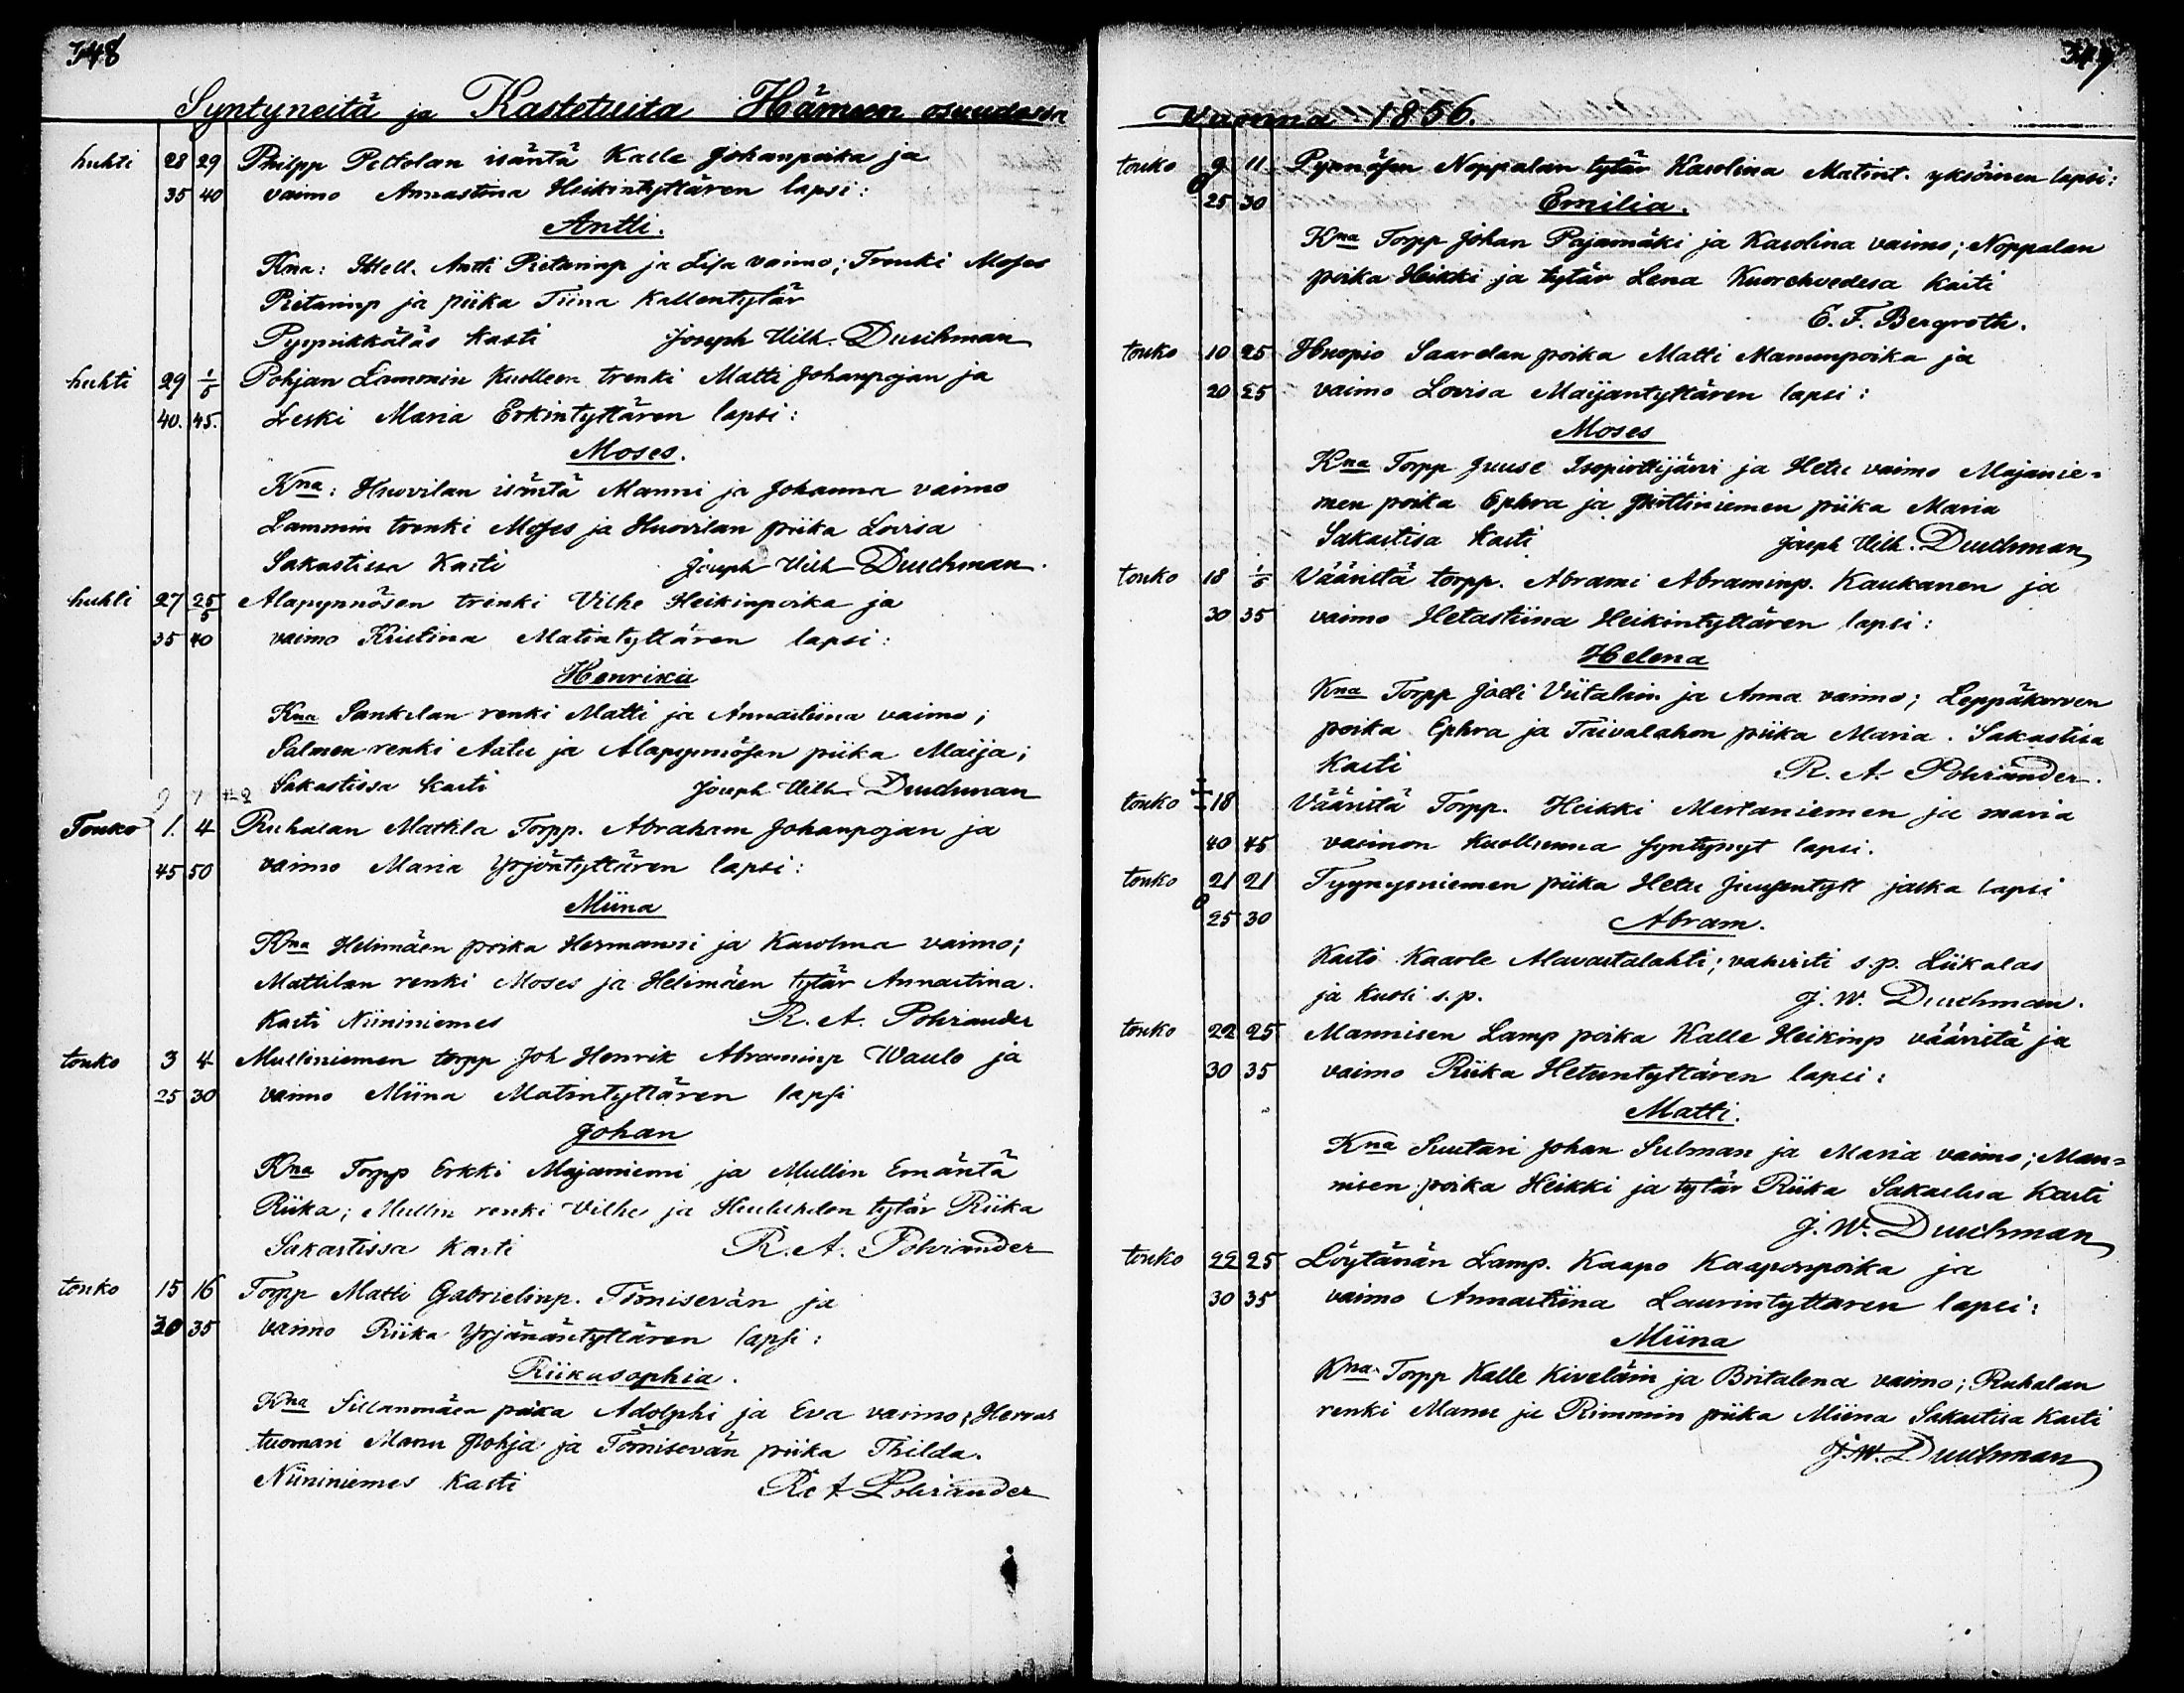 348
Syntyneitä ja Kastetuita Hämeen osuudessa
huhti 28 29 Philpp Peltolan isäntä Kalle Johanpoika ja
35 40 vaimo Annastina Heikintyttären lapsi:
Antti.
Kna: Antti Pietarinp ja Lisa vaimo; Trenki Moses
Pietarinp ja piika Tiina Kallentytär
Pyynikkäläs kasti Joseph Vilh. Duchman
huhti 29 1/5 Pohjan Lammin Kuolleen trenki Matti Johanpojan ja
40. 45. Leski Maria Erkintyttären lapsi:
Moses.
Kna: Huovilan isäntä Manni ja Johanna vaimo
Lammin trenki Moses ja Huovilan piika Lovisa
Sakastissa Kasti Joseph Vilh Duchman.
huhti 27 25/5 Alapynnösen trenki Vilhe Heikinpoika ja
35 40 vaimo Kristina Matintyttären lapsi:
Henrika
Kna Sankelan renki Matti ja Annastiina vaimo;
Salmen renki Aatu ja Alapynnösen piika Maija;
Sakastissa kasti Joseph Vilh Duchman
Touko 1. 4 Ruhalan Mattila Torpp. Abraham Johanpojan ja
45 50 vaimo Maria Yrjöntyttären lapsi:
Miina
Kna Helimäen poika Hermanni ja Karolina vaimo;
Mattilan renki Moses ja Helimäen tytär Annastina.
Kasti Niininiemes R. A. Pohiander
touko 3 4 Mulliniemen torpp Joh Henrik Abraminp Waulo ja
25 30 vaimo Miina Matintyttären lapsi
Johan
Kna Torpp Erkki Majaniemi ja Mullin Emäntä
Riika; Mullin renki Vilhe ja tytär Riika
Sakastissa Kasti R. A. Pohiander
touko 15 16 Torpp Matti Gabrielinp. Törnisevän ja
30 35 vaimo Riika Yrjänäntyttären lapsi:
Riikasophia.
Kna Sillanmäen poika Adolphi ja Eva vaimo; Herras
tuomari Manu Pohja ja Törnisevän piika Thilda.
Niininiemes Kasti R. A Pohiander
349
Vuonna 1856.
touko 9 11 Pynnösen Noppalan tytär Karolina Matint. yksöinen lapsi:
0 25 30 Emilia.
Kna Torpp Johan Pajamäki ja Karolina vaimo; Noppalan
poika Heikki ja tytär Lena Kuorehvedesa kasti
E. F. Bergroth.
touko 10 25 Kuopio Saarelan poika Matti Manunpoika ja
20 25 vaimo Lovisa Maijantyttären lapsi:
Moses
Kna Torpp Juuse Isopirttijärvi ja Hetu vaimo Majanie=
men poika Ephra ja Pirttiniemen piika Maria
Sakastisa kasti Joseph Vilh. Duchman
touko 18 1/6 Vääristä torpp. Abrami Abraminp. Kaukanen ja
30 35 vaimo Hetastiina Heikintyttären lapsi:
Helena
Kna Torpp Joeli Viitalain ja Anna vaimo; Leppäkorven
poika Ephra ja Taivalahon piika Maria. Sakastisa
Kasti R. A. Pohiander.
touko 18 Vääristä Torpp. Heikki Mertaniemen ja maria
40 45 vaimon kuollunna syntynyt lapsi.
touko 21 21 Tyynysniemen piika Hetu Juusentytt jalka lapsi
0 25 30 Abram.
Kasti Kaarle Alavastalahti; vahvisti s.p. Liikalas
ja kuoli s.p. J. W. Duchman.
touko 22 25 Mannisen Lamp poika Kalle Heikinp vääristä ja
30 35 vaimo Riika Hetuntyttären lapsi:
Matti.
Kna Suutari Johan Sulman ja Maria vaimo; Man=
nisen poika Heikki ja tytär Riika Sakastisa Kasti
J. W. Duchman
touko 22 25 Löytänän Lamp. Kaapo Kaaponpoika ja
30 35 vaimo Annastiina Laurintyttären lapsi:
Miina
Kna Torpp Kalle Kiveläin ja Britalena vaimo; Ruhalan
renki Manu ja Rimmin piika Miina Sakastisa Kasti
J. W. Duchman